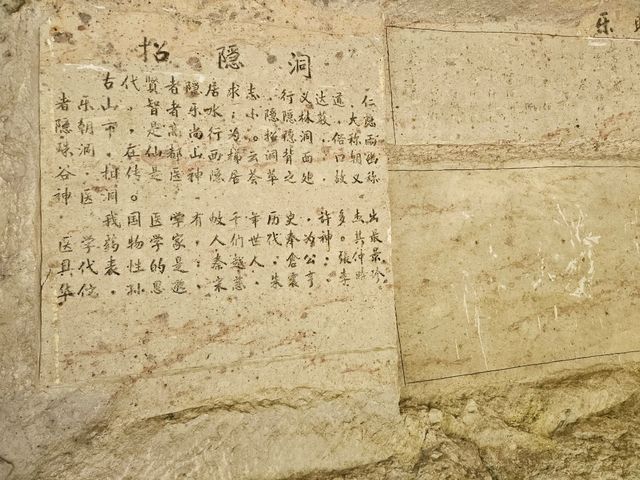 招隐洞
古代賢者隐居求志,行义达道,仁
者乐山,智者乐水;小隐隐林,大隐
隐朝市,是高尚行为。招隐洞,俗称雨
珠洞,在仙都山西梯云洞背面,口朝幽
谷,相传是神医隐居荟萃之处,故又称
神医洞。
我国医学有数千年历史,许多杰出
医学药物学家,人们世代奉为神;其最
具代表性的是;秦越人,仓公,张仲景
华佗,孙思邈,宋慈,朱震亨,李时珍
乐